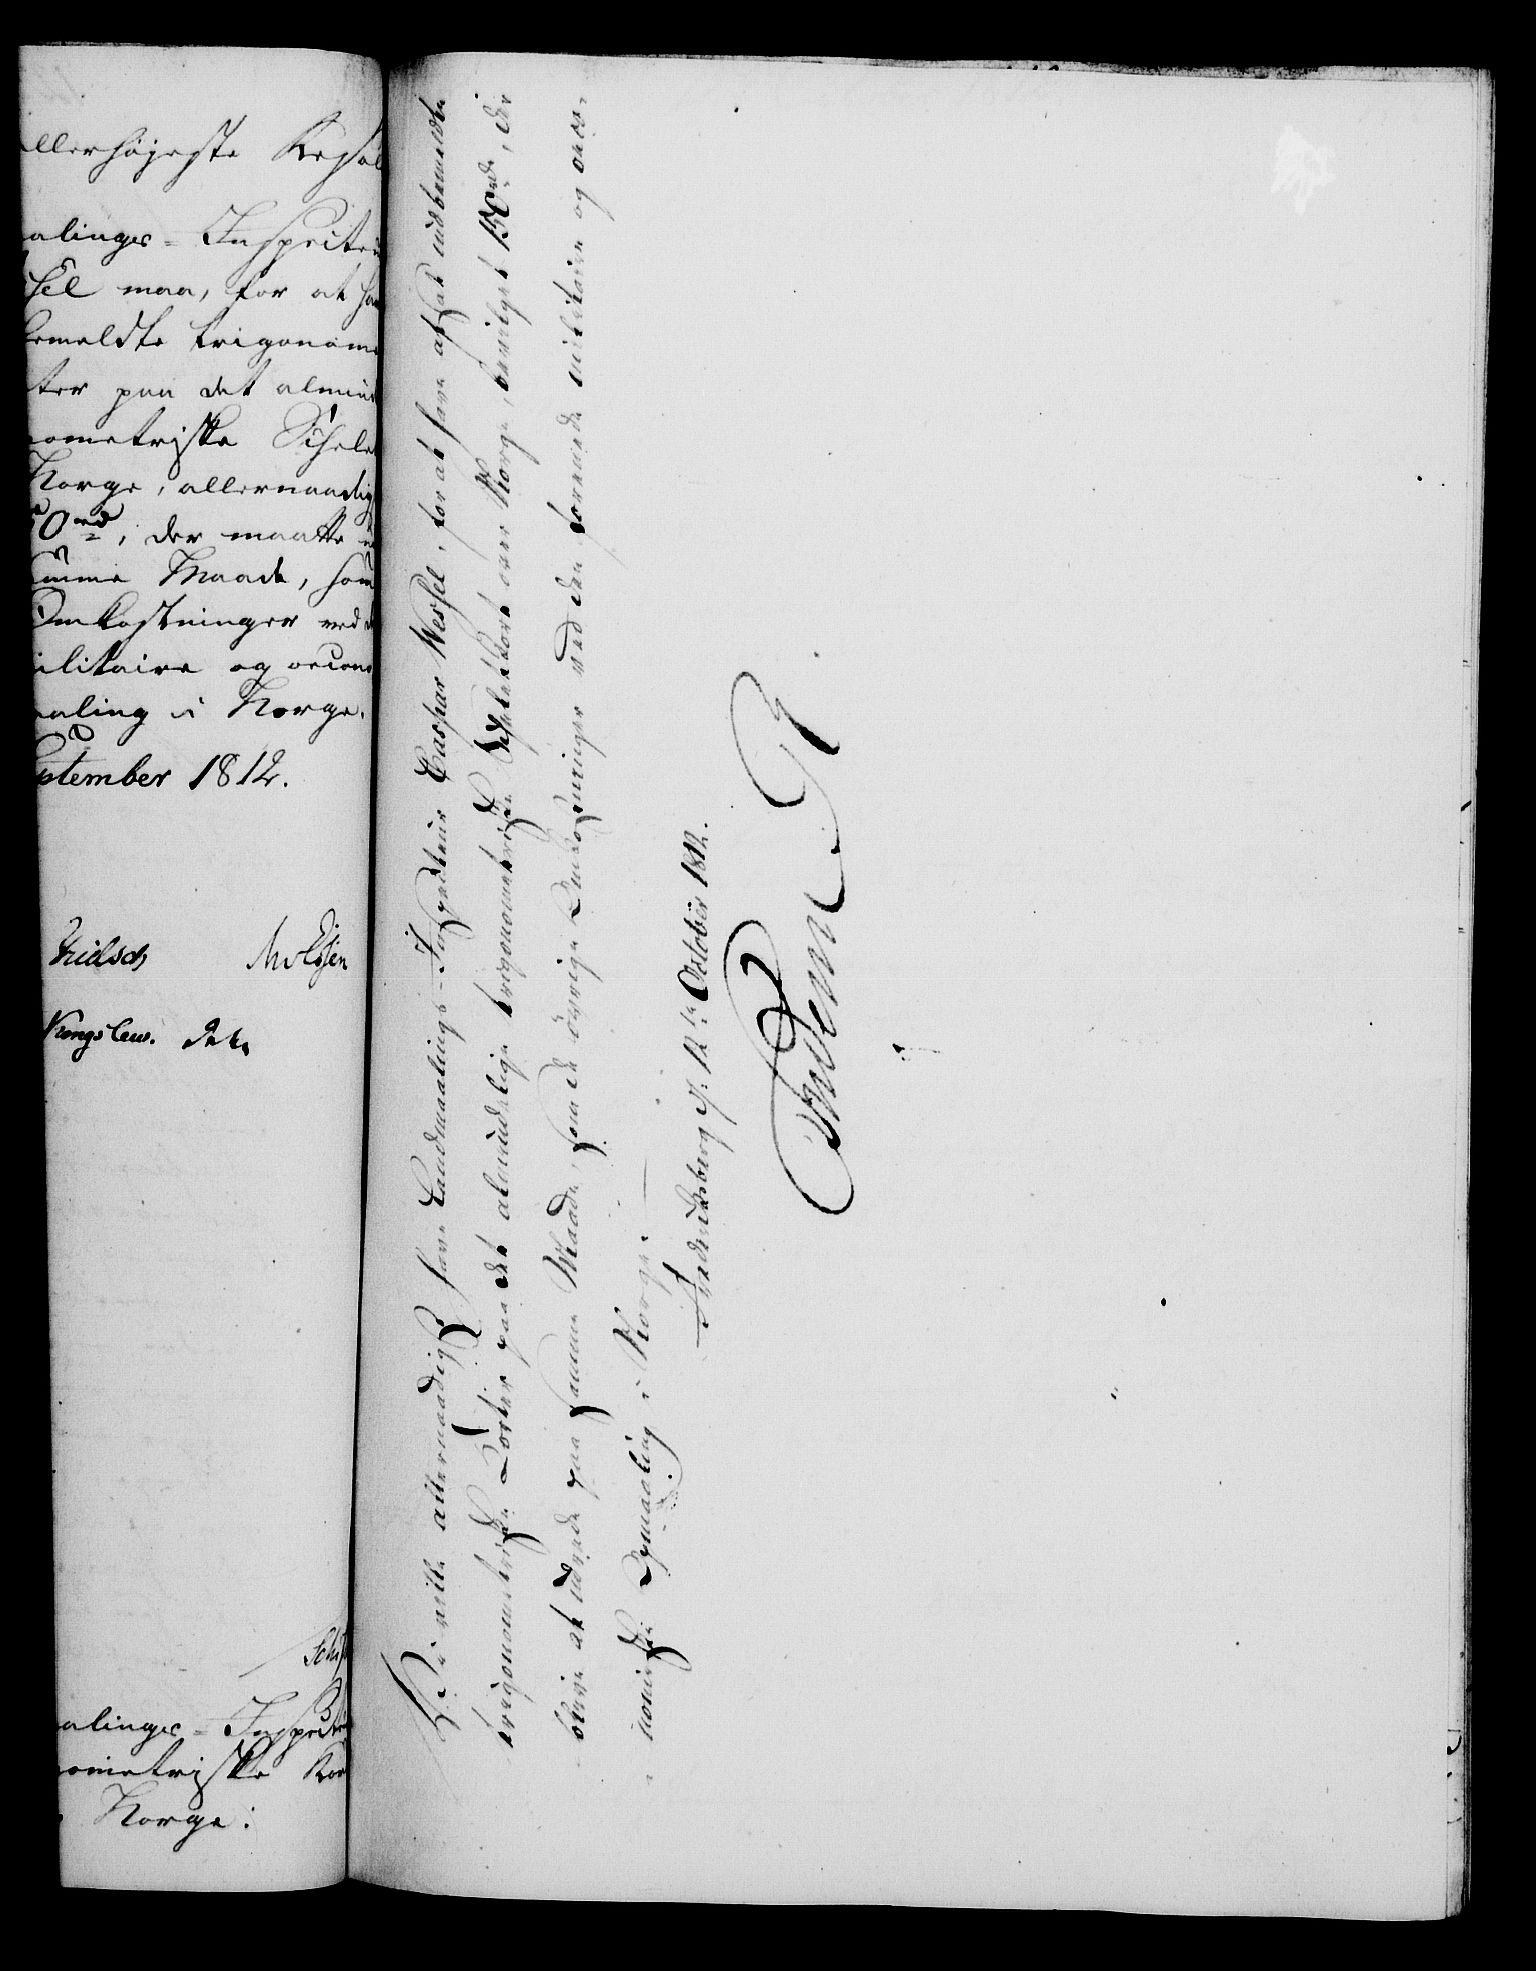 allerhøjeste Resol
alings-Inspecteu
ssel maa, for at ha
bemeldte trigonome
ter paa det almind
nometriske Skele
Norge, allernaadigst
50 rd, der maatte
samme Maade, som
Omkostninger ved d
militaire og oecono
maaling i Norge.
September 1812.
Knudsen
Kongslew.
alings-Inspecte
nometriske Kar
Norge:
Vi ville allernaadigst have Landmaalings-Inspecteur Caspar Wessel, for at have afsat indbemeldte
trigonometriske Poster paa det almindelige trigonometriske Skeletkort over Norge, bevilget 150 rd, der
blive at udrede paa samme Maade, som de øvrige Omkostninger ved den forenede militaire og oeco-
nomiske Opmaaling i Norge.
Frederiksberg d: 12te October 1812.
Frederik R